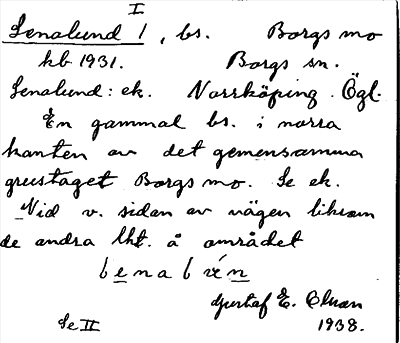 I
Lenalund 1, bs. Borgs mo
kb 1931. Borgs sn.
Lenalund: ek. Norrköping. Ögl.
En gammal bs. i norra
kanten av det gemensamma
grustaget Borgs mo. Se ek.
Vid v. sidan av vägen liksom
de andra lht. å området
Gustaf E.
Se II 1938.